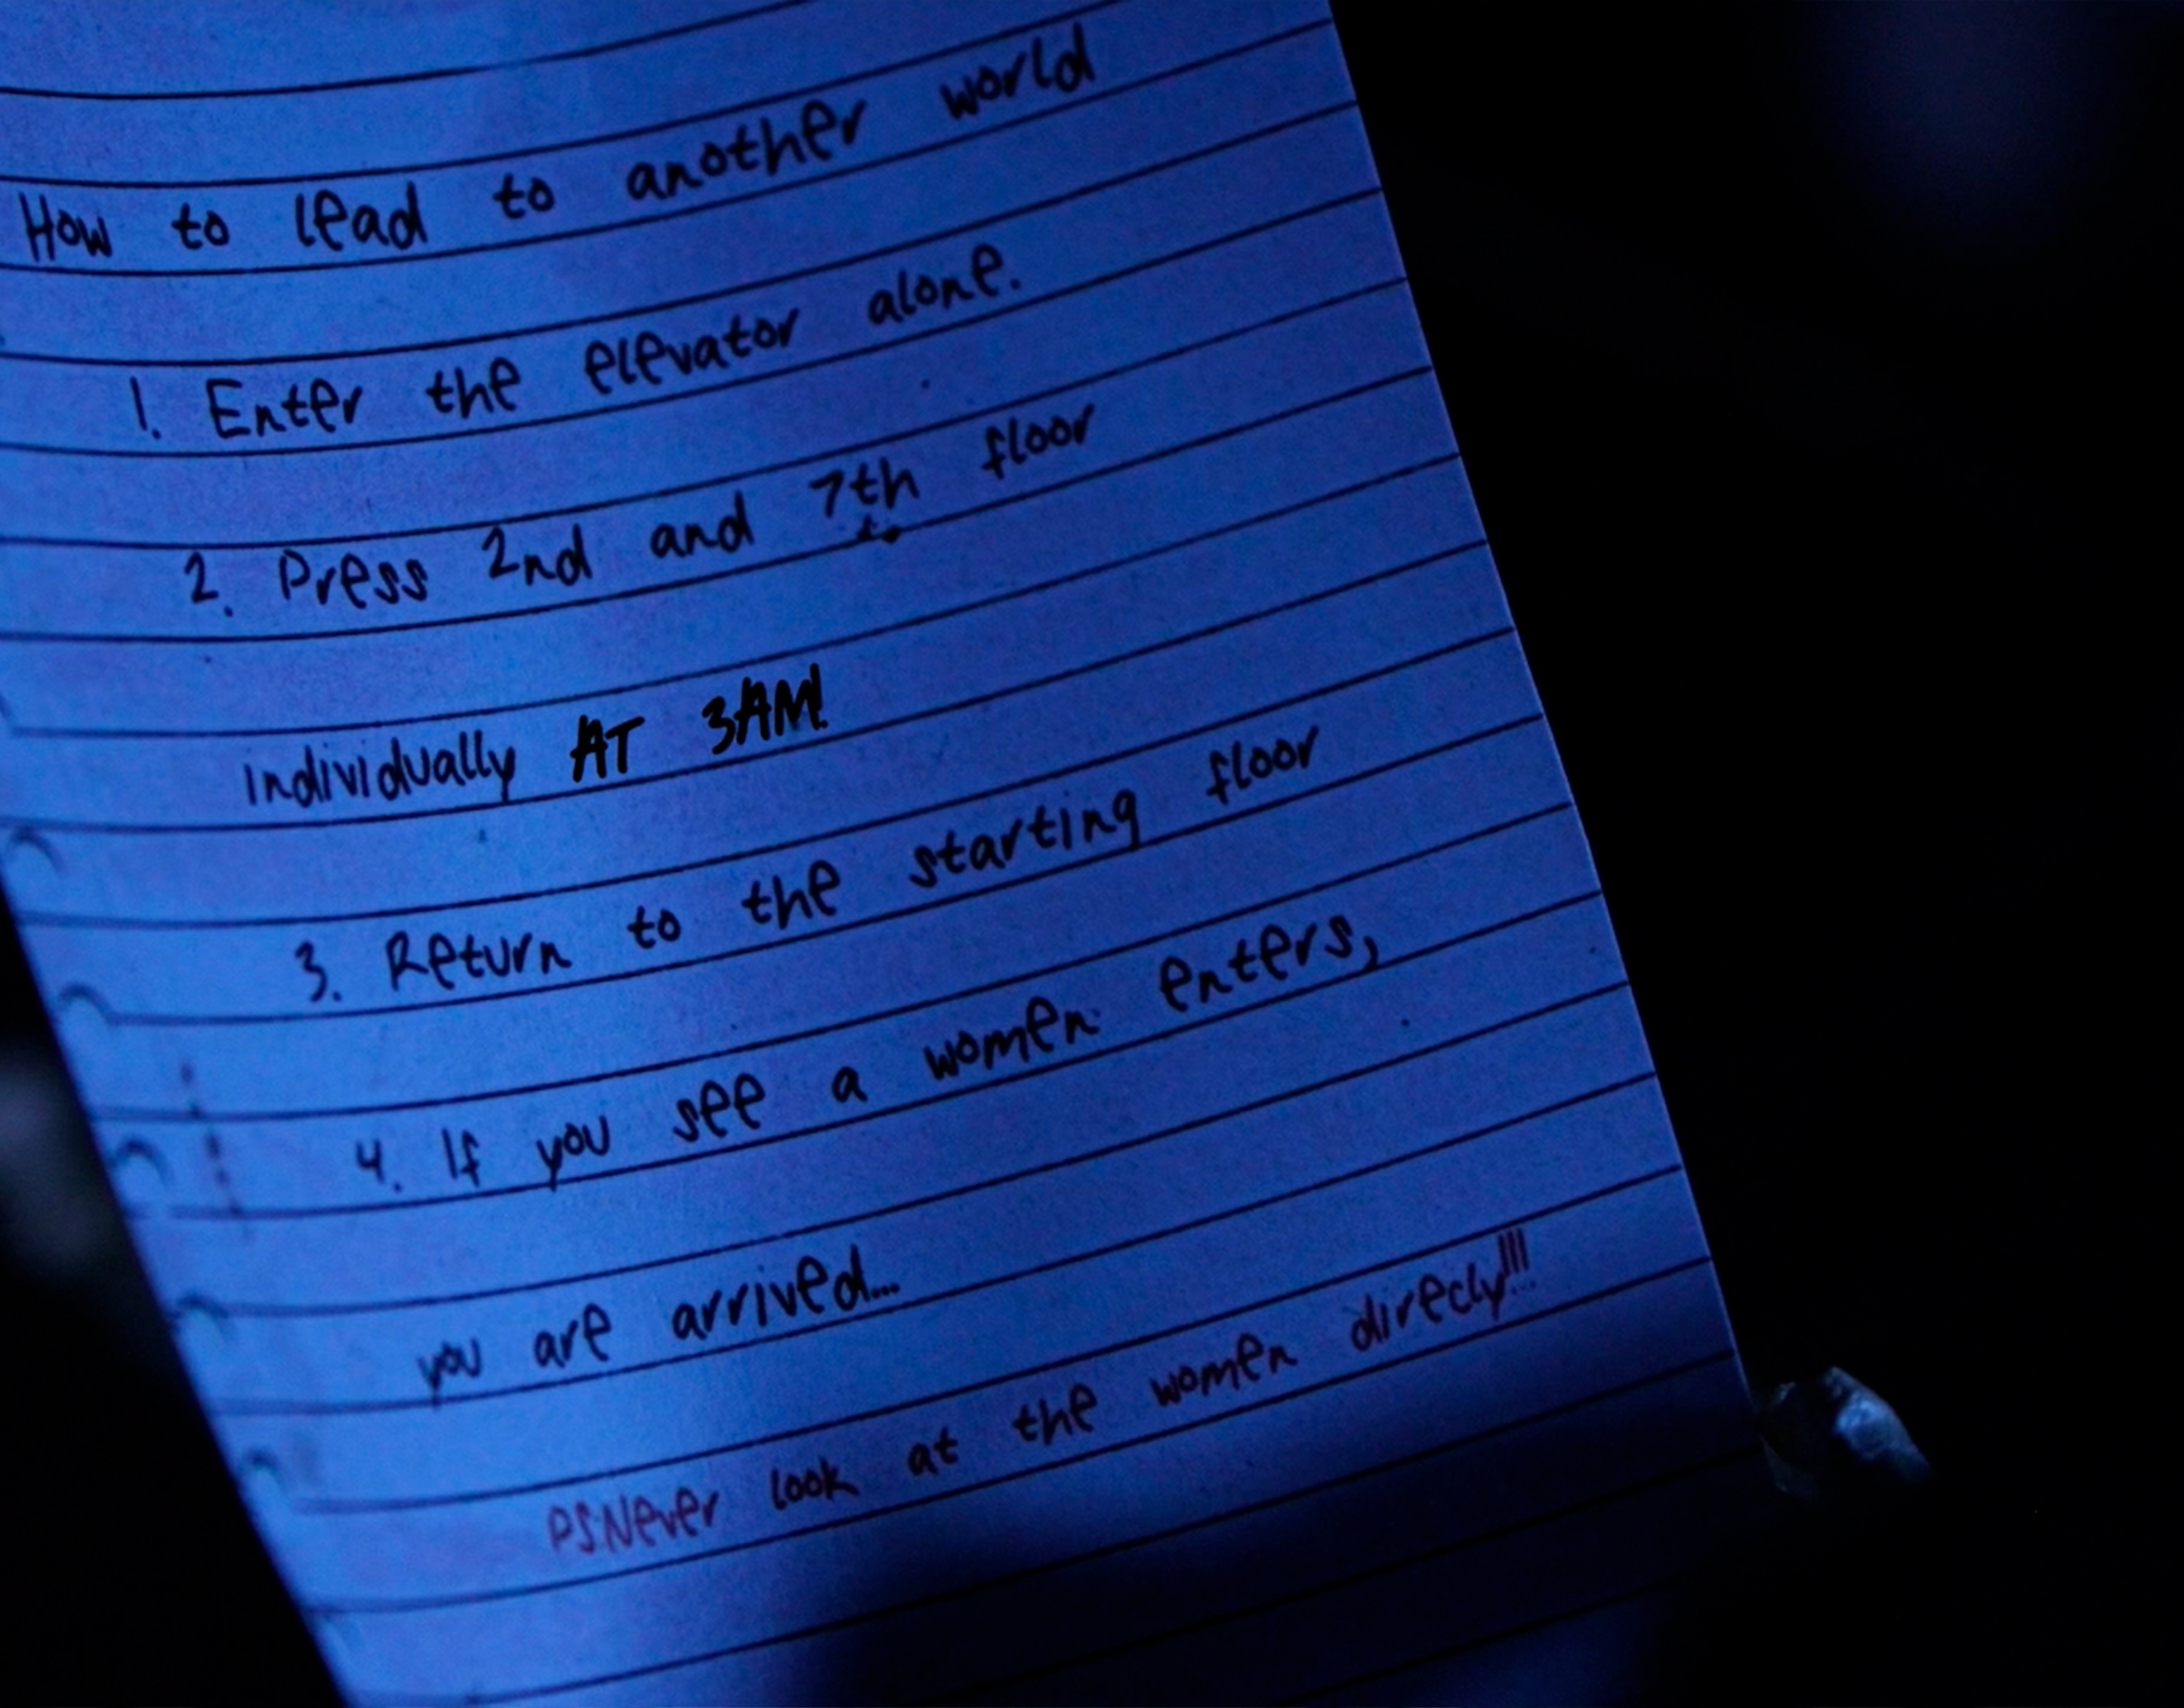 How to lead to another world
1. Enter the elevator alone.
2. Press 2nd and 7th floor
to
individually AT 3AM!
3. Return to the starting floor
4. If you see a women enters,
you are arrived...
PS:Never look at the women direcly!!!